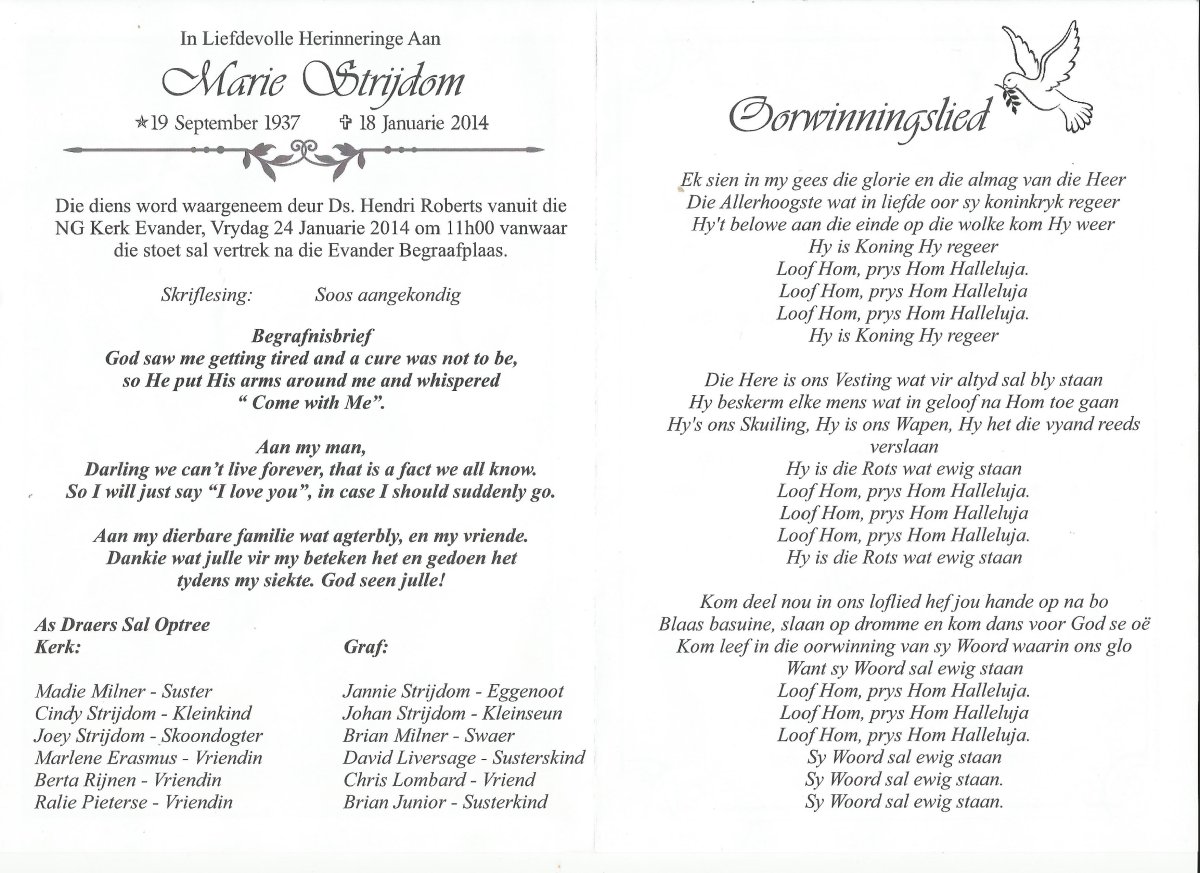 In Liefdevolle Herinneringe Aan
Marie Strijdom
✯19 September 1937 ✞ 18 Januarie 2014
Die diens word waargeneem deur Ds. Hendri Roberts vanuit die
NG Kerk Evander, Vrydag 24 Januarie 2014 om 11h00 vanwaar
die stoet sal vertrek na die Evander Begraafplaas.
Skriflesing: Soos aangekondig
Begrafnisbrief
God saw me getting tired and a cure was not to be,
so He put His arms around me and whispered
“ Come with Me”.
Aan my man,
Darling we can’t live forever, that is a fact we all know.
So I will just say “I love you”, in case I should suddenly go.
Aan my dierbare familie wat agterbly, en my vriende.
Dankie wat julle vir my beteken het en gedoen het
tydens my siekte. God seen julle!
As Draers Sal Optree
Kerk: Graf:
Madie Milner - Suster Jannie Strijdom - Eggenoot
Cindy Strijdom - Kleinkind Johan Strijdom - Kleinseun
Joey Strijdom - Skoondogter Brian Milner - Swaer
Marlene Erasmus - Vriendin David Liversage - Susterskind
Berta Rijnen - Vriendin Chris Lombard - Vriend
Ralie Pieterse - Vriendin Brian Junior - Susterkind
Oorwinningslied
Ek sien in my gees die glorie en die almag van die Heer
Die Allerhoogste wat in liefde oor sy koninkryk regeer
Hy't belowe aan die einde op die wolke kom Hy weer
Hy is Koning Hy regeer
Loof Hom, prys Hom Halleluja.
Loof Hom, prys Hom Halleluja
Loof Hom, prys Hom Halleluja.
Hy is Koning Hy regeer
Die Here is ons Vesting wat vir altyd sal bly staan
Hy beskerm elke mens wat in geloof na Hom toe gaan
Hy's ons Skuiling, Hy is ons Wapen, Hy het die vyand reeds
verslaan
Hy is die Rots wat ewig staan
Loof Hom, prys Hom Halleluja.
Loof Hom, prys Hom Halleluja
Loof Hom, prys Hom Halleluja.
Hy is die Rots wat ewig staan
Kom deel nou in ons loflied hef jou hande op na bo
Blaas basuine, slaan op dromme en kom dans voor God se oë
Kom leef in die oorwinning van sy Woord waarin ons glo
Want sy Woord sal ewig staan
Loof Hom, prys Hom Halleluja.
Loof Hom, prys Hom Halleluja
Loof Hom, prys Hom Halleluja.
Sy Woord sal ewig staan
Sy Woord sal ewig staan.
Sy Woord sal ewig staan.